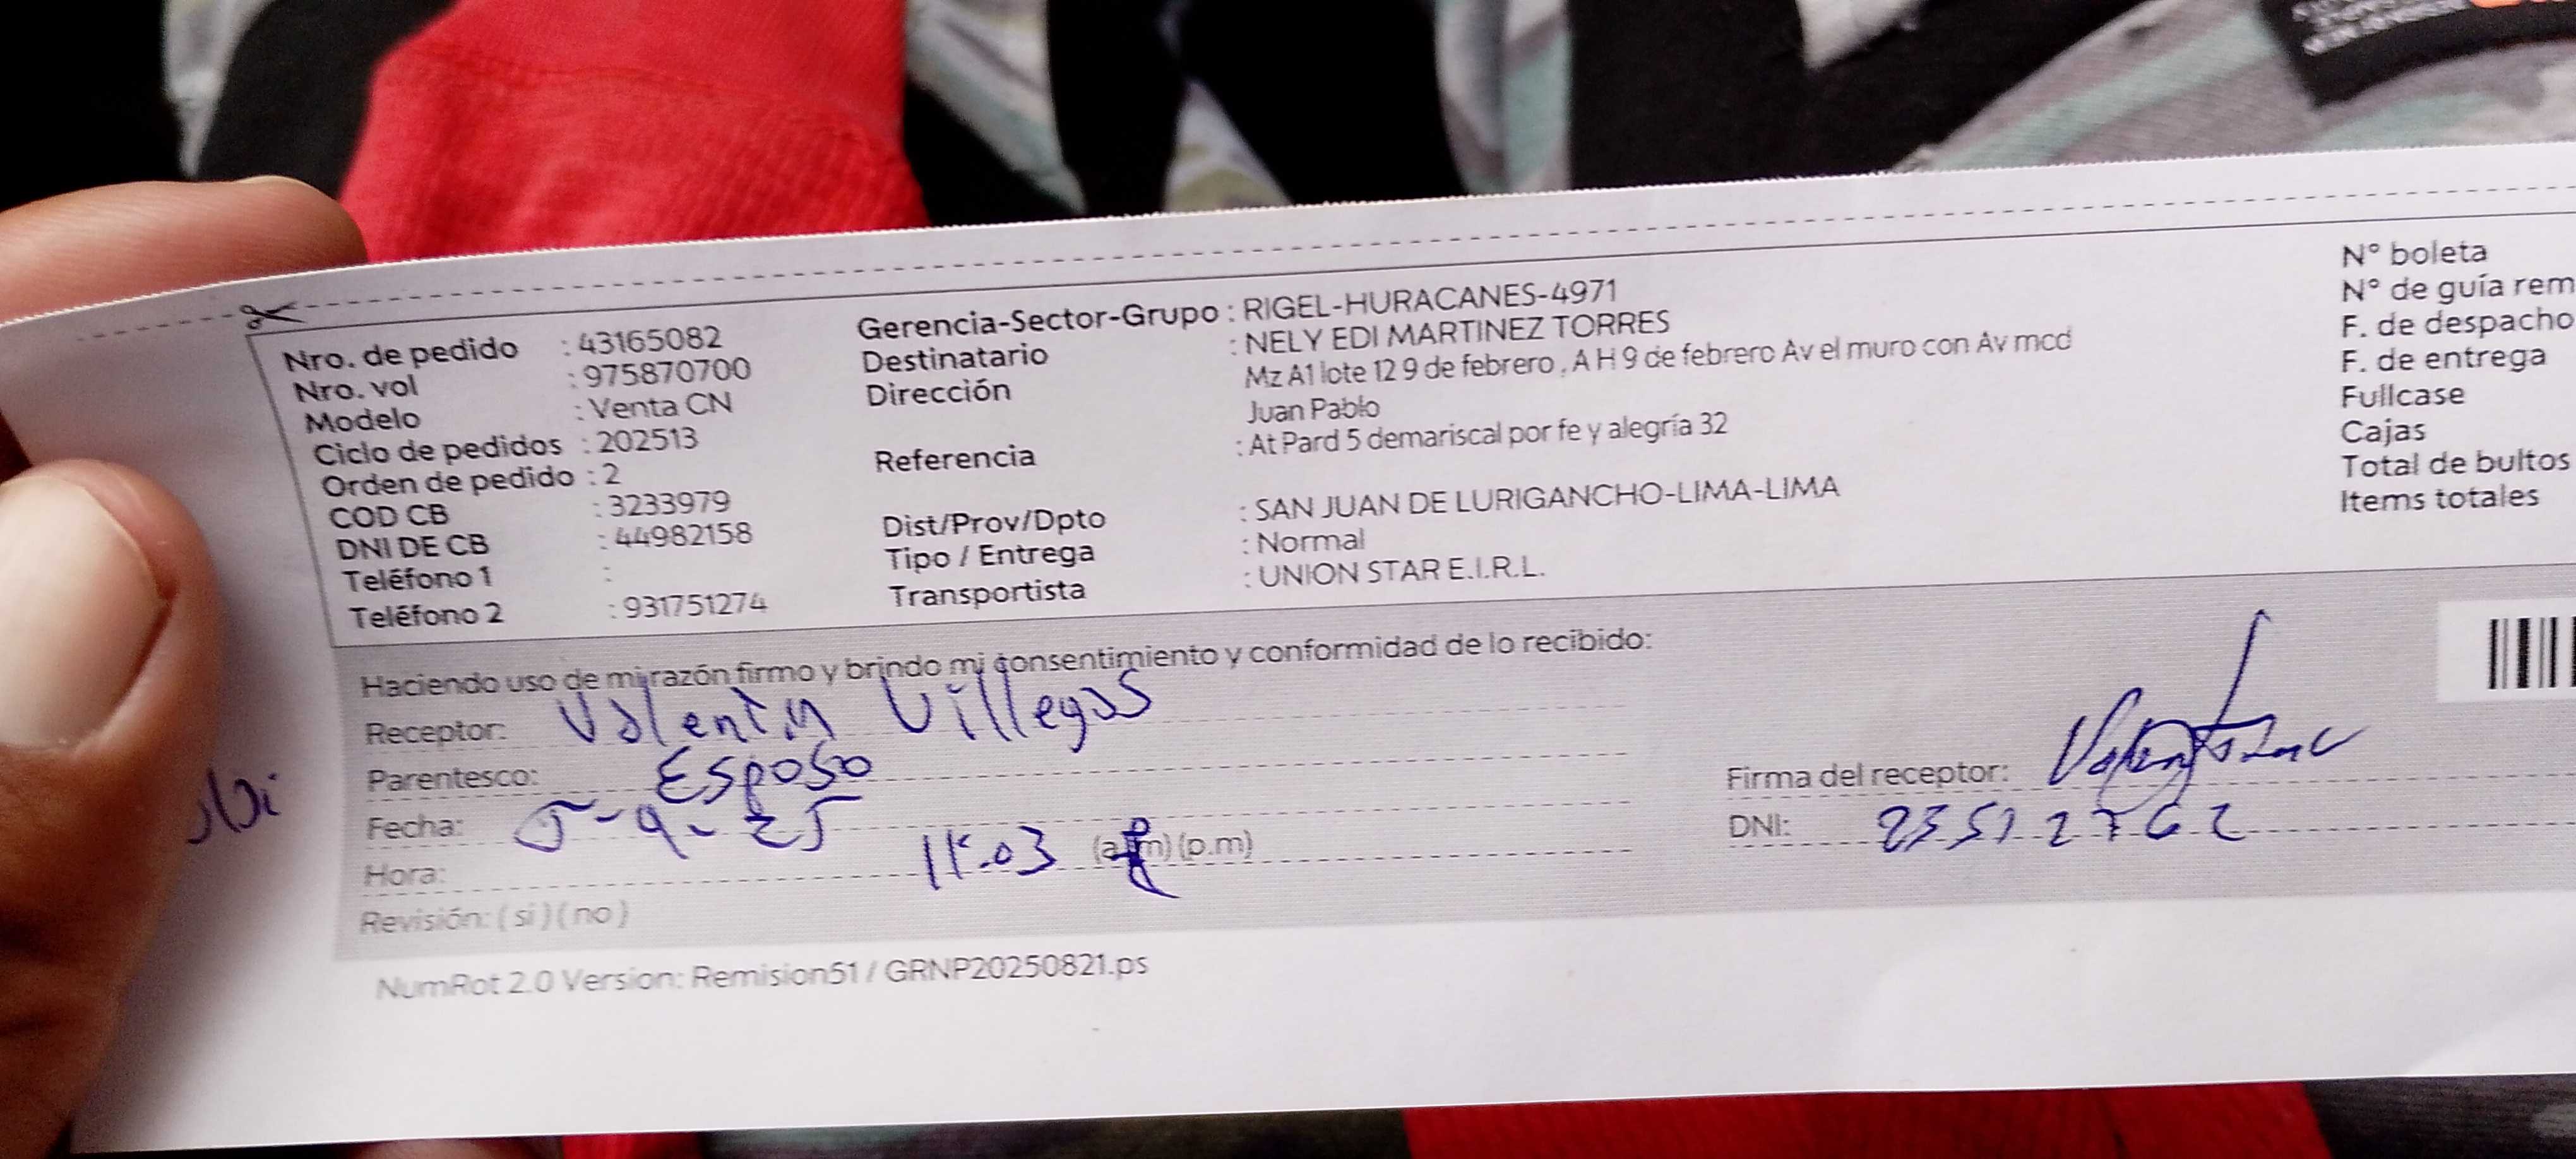 Nro. de pedido : 43165082
Nro. vol : 975870700
Modelo : Venta CN
Ciclo de pedidos : 202513
Orden de pedido : 2
COD CB : 3233979
DNI DE CB : 44982158
Teléfono 1 :
Teléfono 2 : 931751274
Gerencia-Sector-Grupo : RIGEL-HURACANES-4971
Destinatario : NELY EDI MARTINEZ TORRES
Dirección Mz A1 lote 12 9 de febrero , A H 9 de febrero Av el muro con Av mcd
Juan Pablo
Referencia : At Pard 5 demariscal por fe y alegría 32
Dist/Prov/Dpto : SAN JUAN DE LURIGANCHO-LIMA-LIMA
Tipo / Entrega : Normal
Transportista : UNION STAR E.I.R.L.
N° boleta
N° de guía rem
F. de despacho
F. de entrega
Fullcase
Cajas
Total de bultos
Items totales
Haciendo uso de mi razón firmo y brindo mi consentimiento y conformidad de lo recibido:
Receptor: Valentin Villegas
Parentesco: Esposo
Fecha: 5-9-25
Hora: 11:03 (a.m) (p.m)
Revisión: ( si ) ( no )
Firma del receptor:
DNI:
NumRot 2.0 Version: Remision51 / GRNP20250821.ps